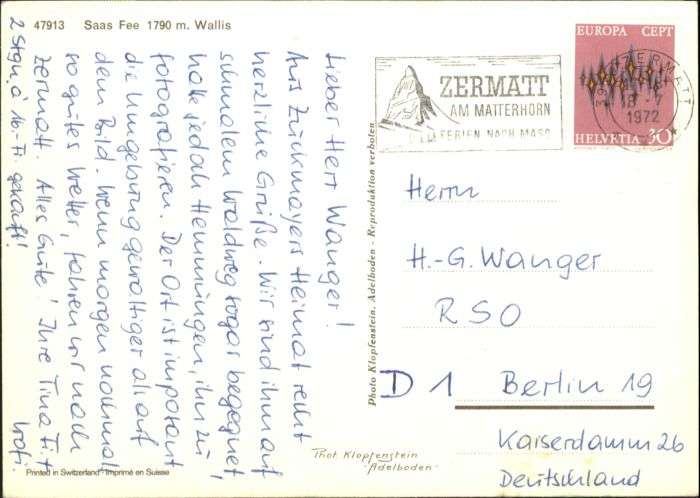 47913 Saas Fee 1790 m. Wallis
Lieber Herr Wanger!
Aus Zuckmayers Heimat recht
herzliche Grüße. Wir sind ihm auf
schmalem Waldweg sogar begegnet,
hatte jedoch Hemmungen, ihn zu
fotografieren. Der Ort ist imposant
die Umgebung gewaltiger als auf
dem Bild. Wenn morgen nochmal
so gutes Wetter, fahren wir nach
Zermatt. Alles Gute! Ihre Tina
2 Sign. à 10.- Fr. gekauft!
Printed in Switzerland - Imprimé en Suisse
Photo Klopfenstein, Adelboden - Reproduktion verboten
Phot. Klopfenstein
"Adelboden"
ZERMATT
AM MATTERHORN
FERIEN NACH MASS
EUROPA CEPT
ZERMATT
1972
HELVETIA 30
Herrn
H.-G. Wanger
RSO
D 1 Berlin 19
Kaiserdamm 26
Deutschland